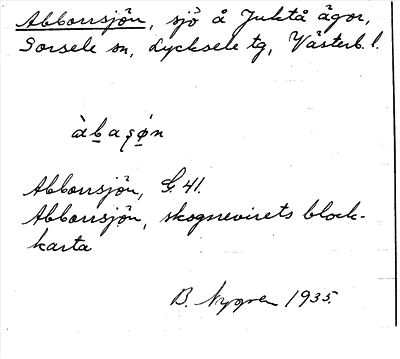 Abborrsjön, sjö å Juktå ägor,
Sorsele sn, Lycksele tg, Västerb. l.
àbaʂøn
Abborrsjön, G. 41.
Abborrsjön, skognevirets block-
karta
B. Nygren 1935.